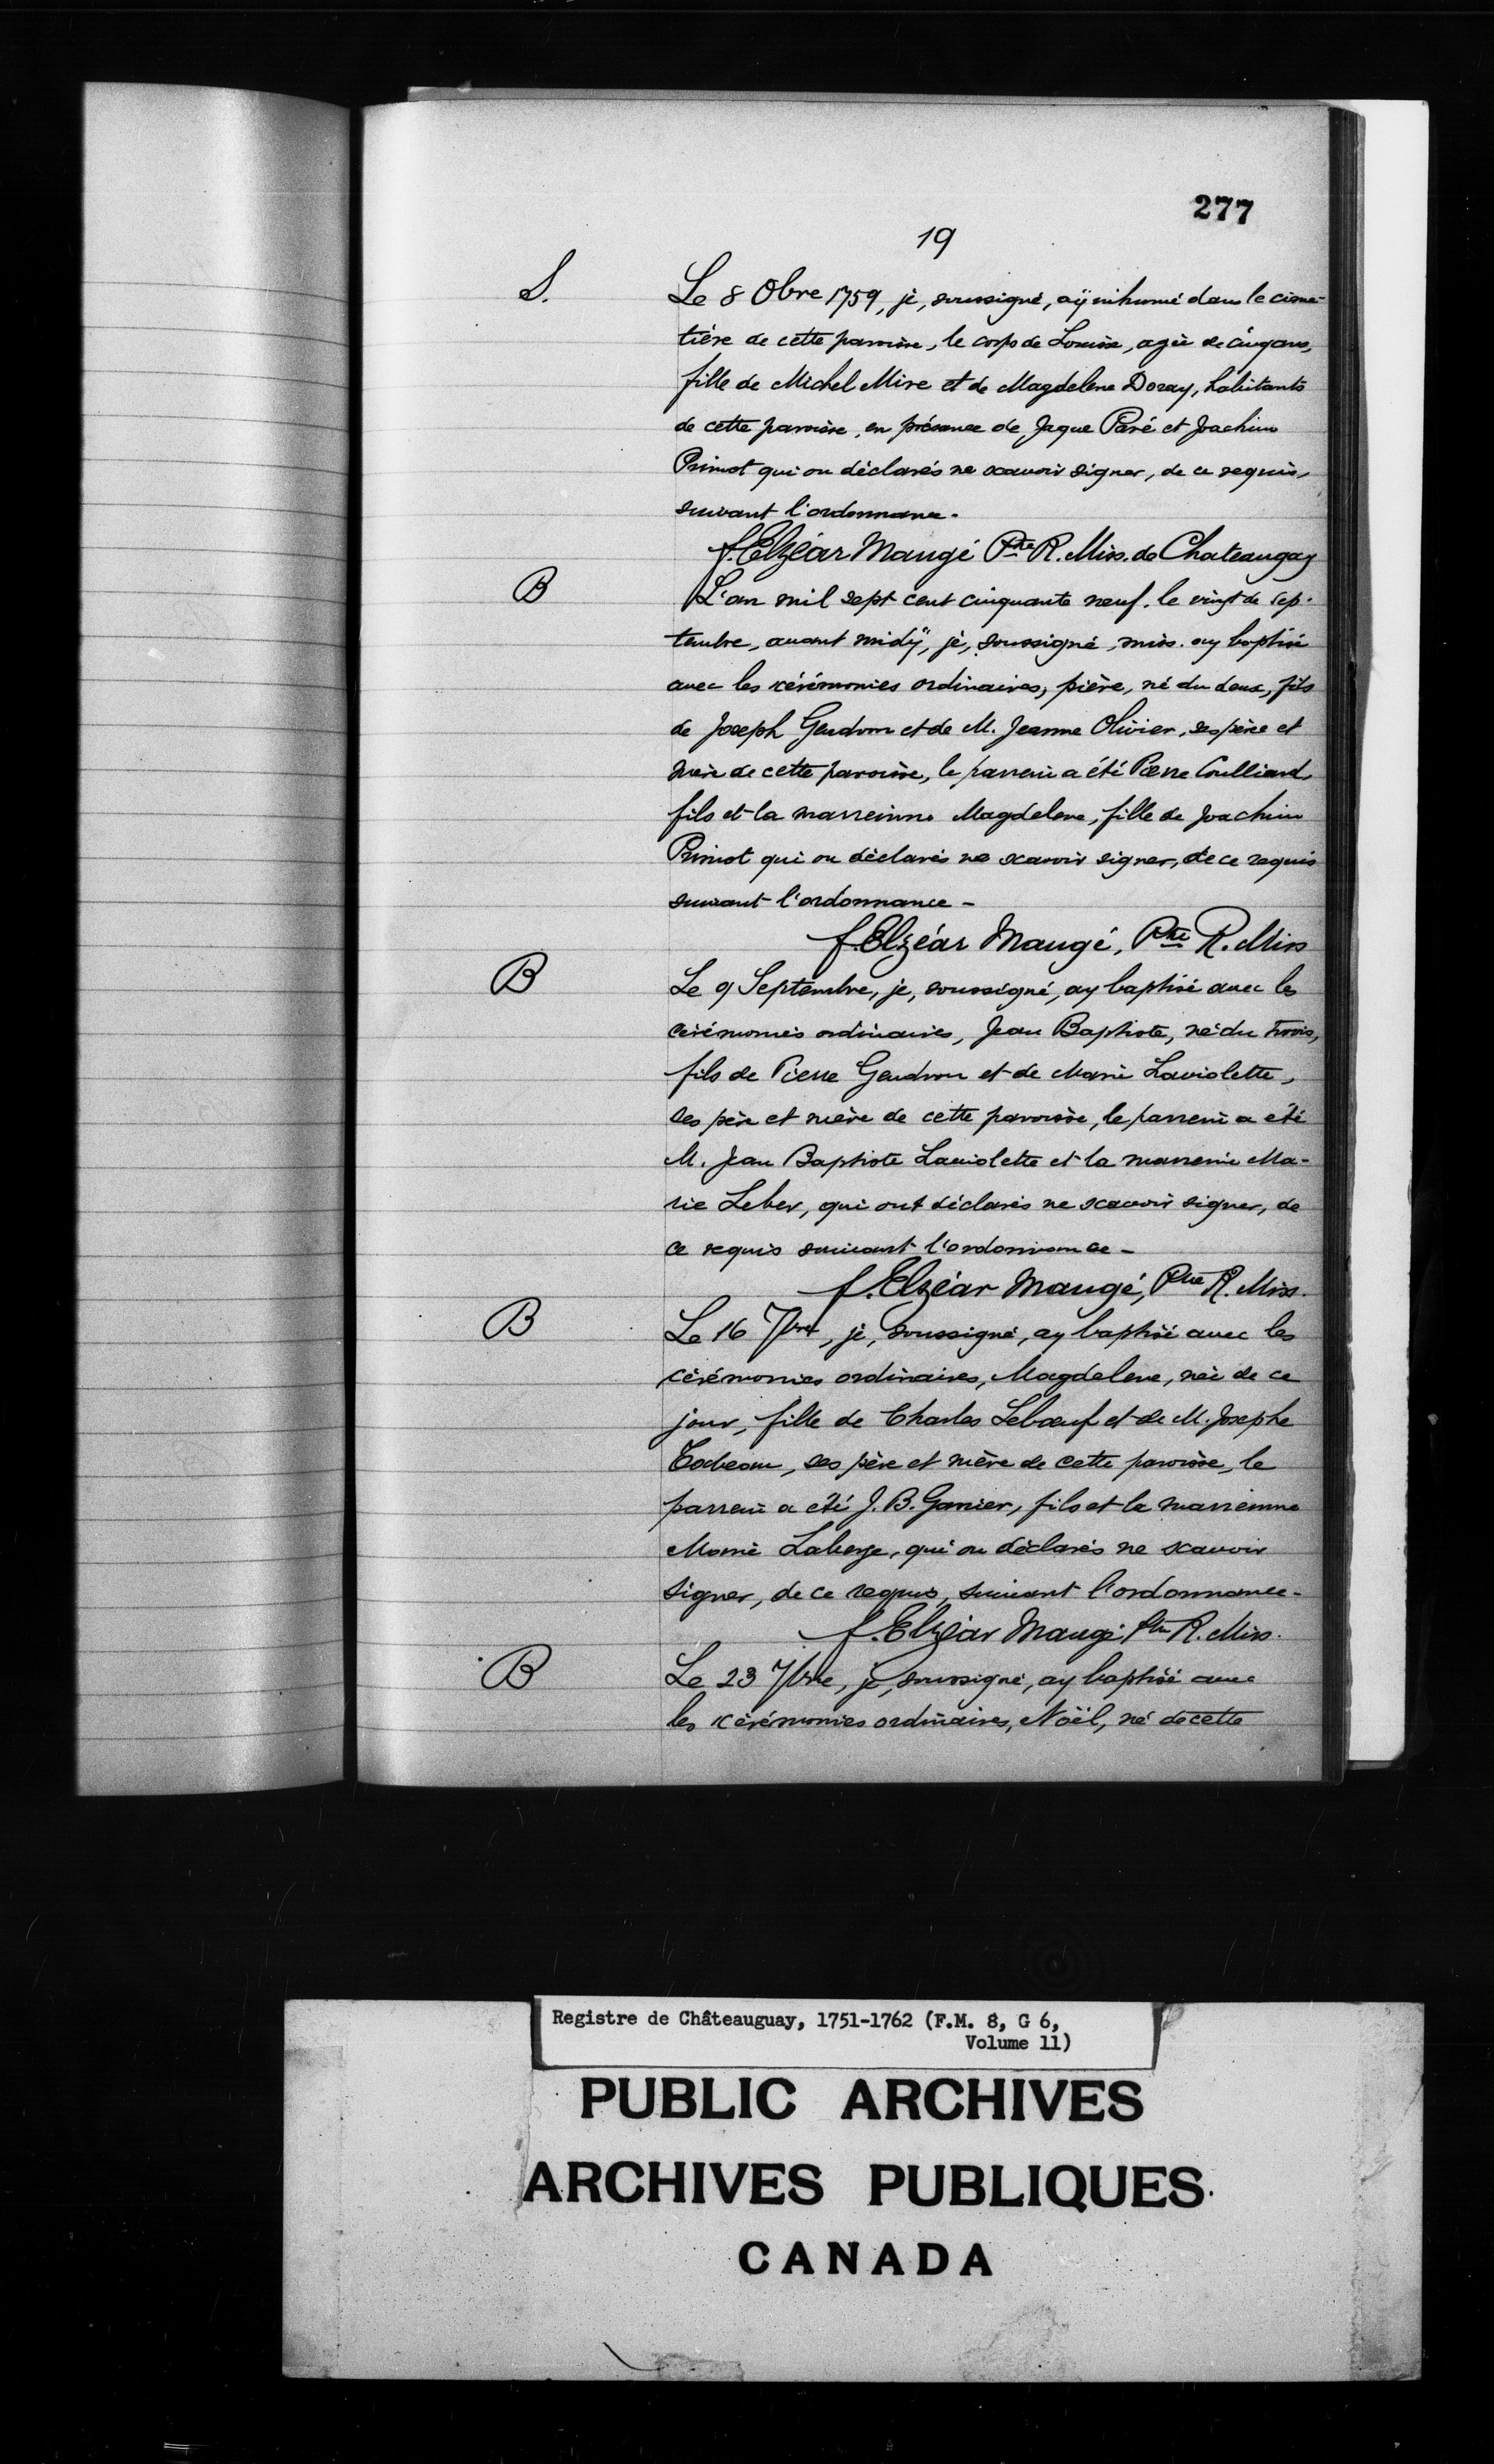 277
19
S. Le 8 8bre 1759, je, soussigné, aÿ inhumé dans le cime-
tière de cette paroisse, le corps de Louise, agée de cinq ans,
fille de Michel Mire et de Magdelene Doray, habitants
de cette paroisse, en présence de Jaque Paré et Joachim
Primot qui on déclarés ne scavoir signer, de ce requis,
suivant l'ordonnance.
f. Elzéar Maugé Ptre R. Miss. de Chateaugay
B L'an mil sept cent cinquante neuf, le vingt de Sep-
tembre, avant midÿ, je, soussigné, miss. ay baptisé
avec les cérémonies ordinaires, pière, né du deux, fils
de Joseph Gendron et de M. Jeanne Olivier, ses père et
mère de cette paroisse, le parrein a été Pierre Coulliard,
fils et la marreinne Magdelene, fille de Joachim
Primot qui on déclarés ne scavoir signer, de ce requis
suivant l'ordonnance -
f. Elzéar Maugé, Ptre R. Miss
B Le 9 Septembre, je, soussigné, ay baptisé avec les
cérémonies ordinaires, Jean Baptiste, né du trois,
fils de Pierre Gendron et de Marie Laviolette,
ses père et mère de cette paroisse, le parrein a été
M. Jean Baptiste Laviolette et la marreine Ma-
rie Leber, qui ont déclarés ne scavoir signer, de
ce requis suivant l'ordonnance -
f. Elzéar Maugé, Ptre R. Miss.
B Le 16 7bre, je, soussigné, ay baptisé avec les
cérémonies ordinaires, Magdelene, née de ce
jour, fille de Charles Lebœuf et de M. Josephe
ses père et mère de cette paroisse, le
parrein a été J. B. Garnier, fils et la marreinne
Marie Laberge, qui on déclarés ne scavoir
signer, de ce requis, suivant l'ordonnance -
f. Elzéar Maugé Ptre R. Miss.
B Le 23 7bre, je, soussigné, ay baptisé avec
les cérémonies ordinaires, Noël, né de cette
Registre de Châteauguay, 1751-1762 (F.M. 8, G 6,
Volume 11)
PUBLIC ARCHIVES
ARCHIVES PUBLIQUES
CANADA